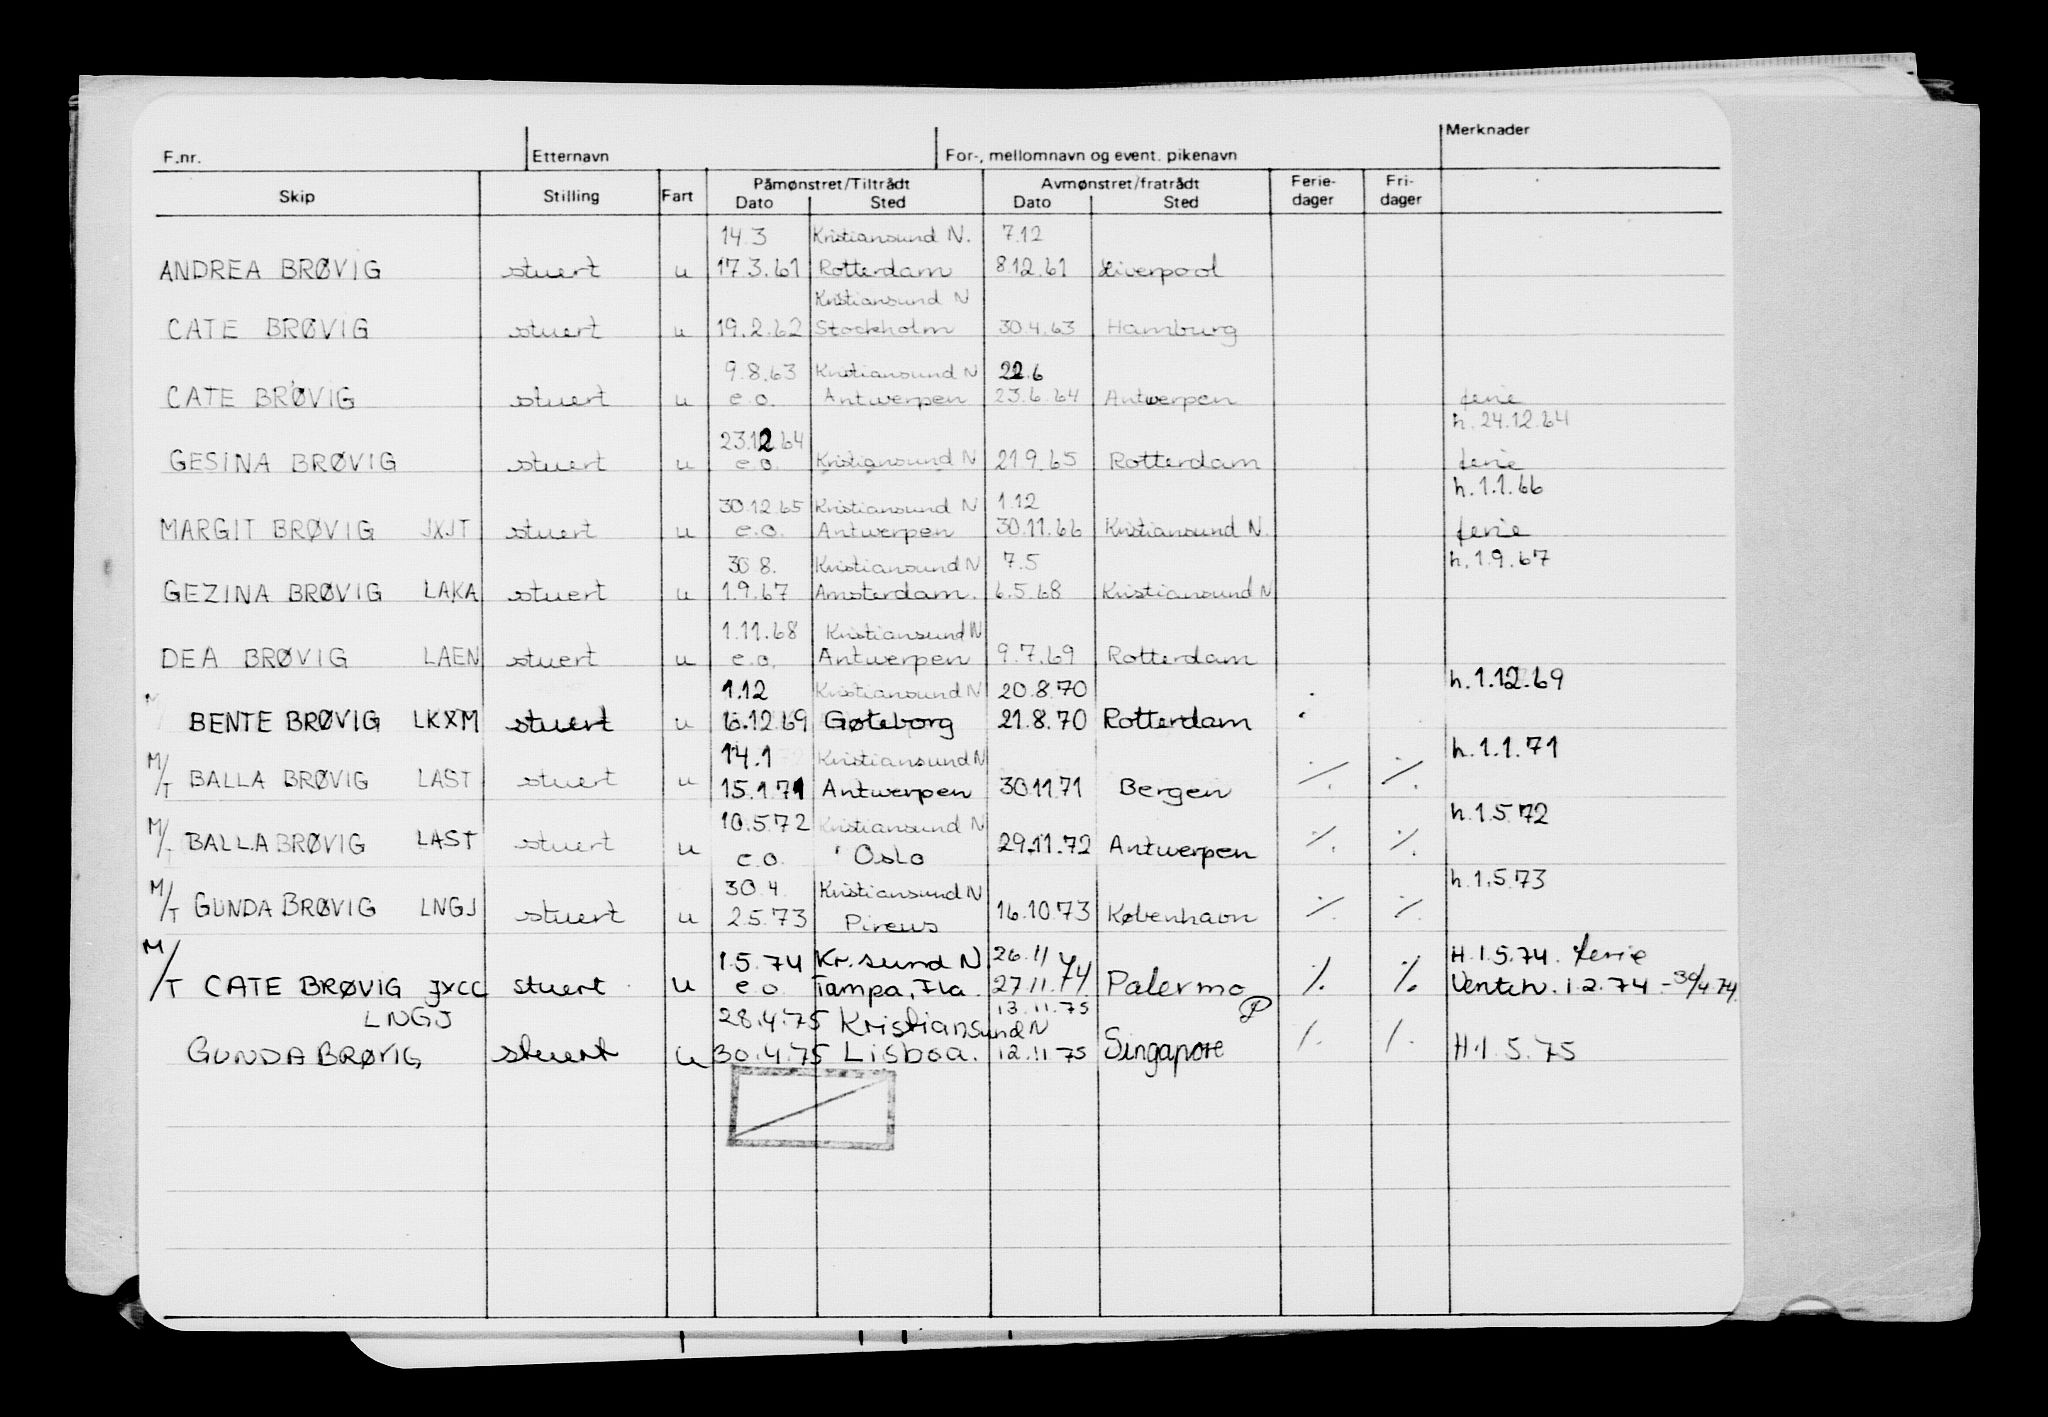 F.nr. Etternavn For-, mellomnavn og event. pikenavn Merknader
Skip Stilling Fart Påmønstret/Tiltrådt Avmønstret/fratrådt Ferie- Fri-
Dato Sted Dato Sted dager dager
14.3 Kristiansund N. 7.12
ANDREA BRØVIG stuert u 17.3.61 Rotterdam 8.12.61 Liverpool
Kristiansund N
CATE BRØVIG stuert u 19.2.62 Stockholm 30.4.63 Hamburg
9.8.63 Kristiansund N 22.6
CATE BRØVIG stuert u e.o. Antwerpen 23.6.64 Antwerpen ferie
h. 24.12.64
23.12.64
GESINA BRØVIG stuert u e.o. Kristiansund N 21.9.65 Rotterdam ferie
h. 1.1.66
30.12.65 Kristiansund N 1.12
MARGIT BRØVIG JXJT stuert u e.o. Antwerpen 30.11.66 Kristiansund N. ferie
h. 1.9.67
30.8. Kristiansund N 7.5
GEZINA BRØVIG LAKA stuert u 1.9.67 Amsterdam. 6.5.68 Kristiansund N
1.11.68 Kristiansund N
DEA BRØVIG LAEN stuert u e.o. Antwerpen 9.7.69 Rotterdam
1.12 Kristiansund N 20.8.70 h.1.12.69
M/ BENTE BRØVIG LKXM stuert u 6.12.69 Gøteborg 21.8.70 Rotterdam
14.1 Kristiansund N h.1.1.71
M/T BALLA BRØVIG LAST stuert u 15.1.71 Antwerpen 30.11.71 Bergen ./. ./.
10.5.72 Kristiansund N h.1.5.72
M/T BALLA BRØVIG LAST stuert u e.o. Oslo 29.11.72 Antwerpen ./. ./.
30.4. Kristiansund N h.1.5.73
M/T GUNDA BRØVIG LNGJ stuert u 2.5.73 Pireus 16.10.73 København ./. ./.
1.5.74 Kr.sund N 26.11 H.1.5.74. ferie
M/T CATE BRØVIG JXCC stuert u e.o. Tampa, Fla. 27.11.74 Palermo ./. ./. Ventev. 1.2.74 - 30/4 74.
LNGJ 28.4.75 Kristiansund N 13.11.75
GUNDA BRØVIG, stuert u 30.4.75 Lisboa. 12.11.75 Singapore /. /. H.1.5.75